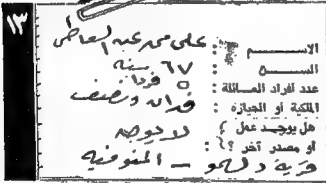 ١٣
الاسم : على مرعى عبد العاطى
السن : ٦٧ سنة
عدد أفراد العائلة : ٥ فرداً
الملكية أو الحيازة : فدان ونصف
هل يوجد عمل أو مصدر آخر ؟ : لا يوجد
قرية دلهمو - المنوفية